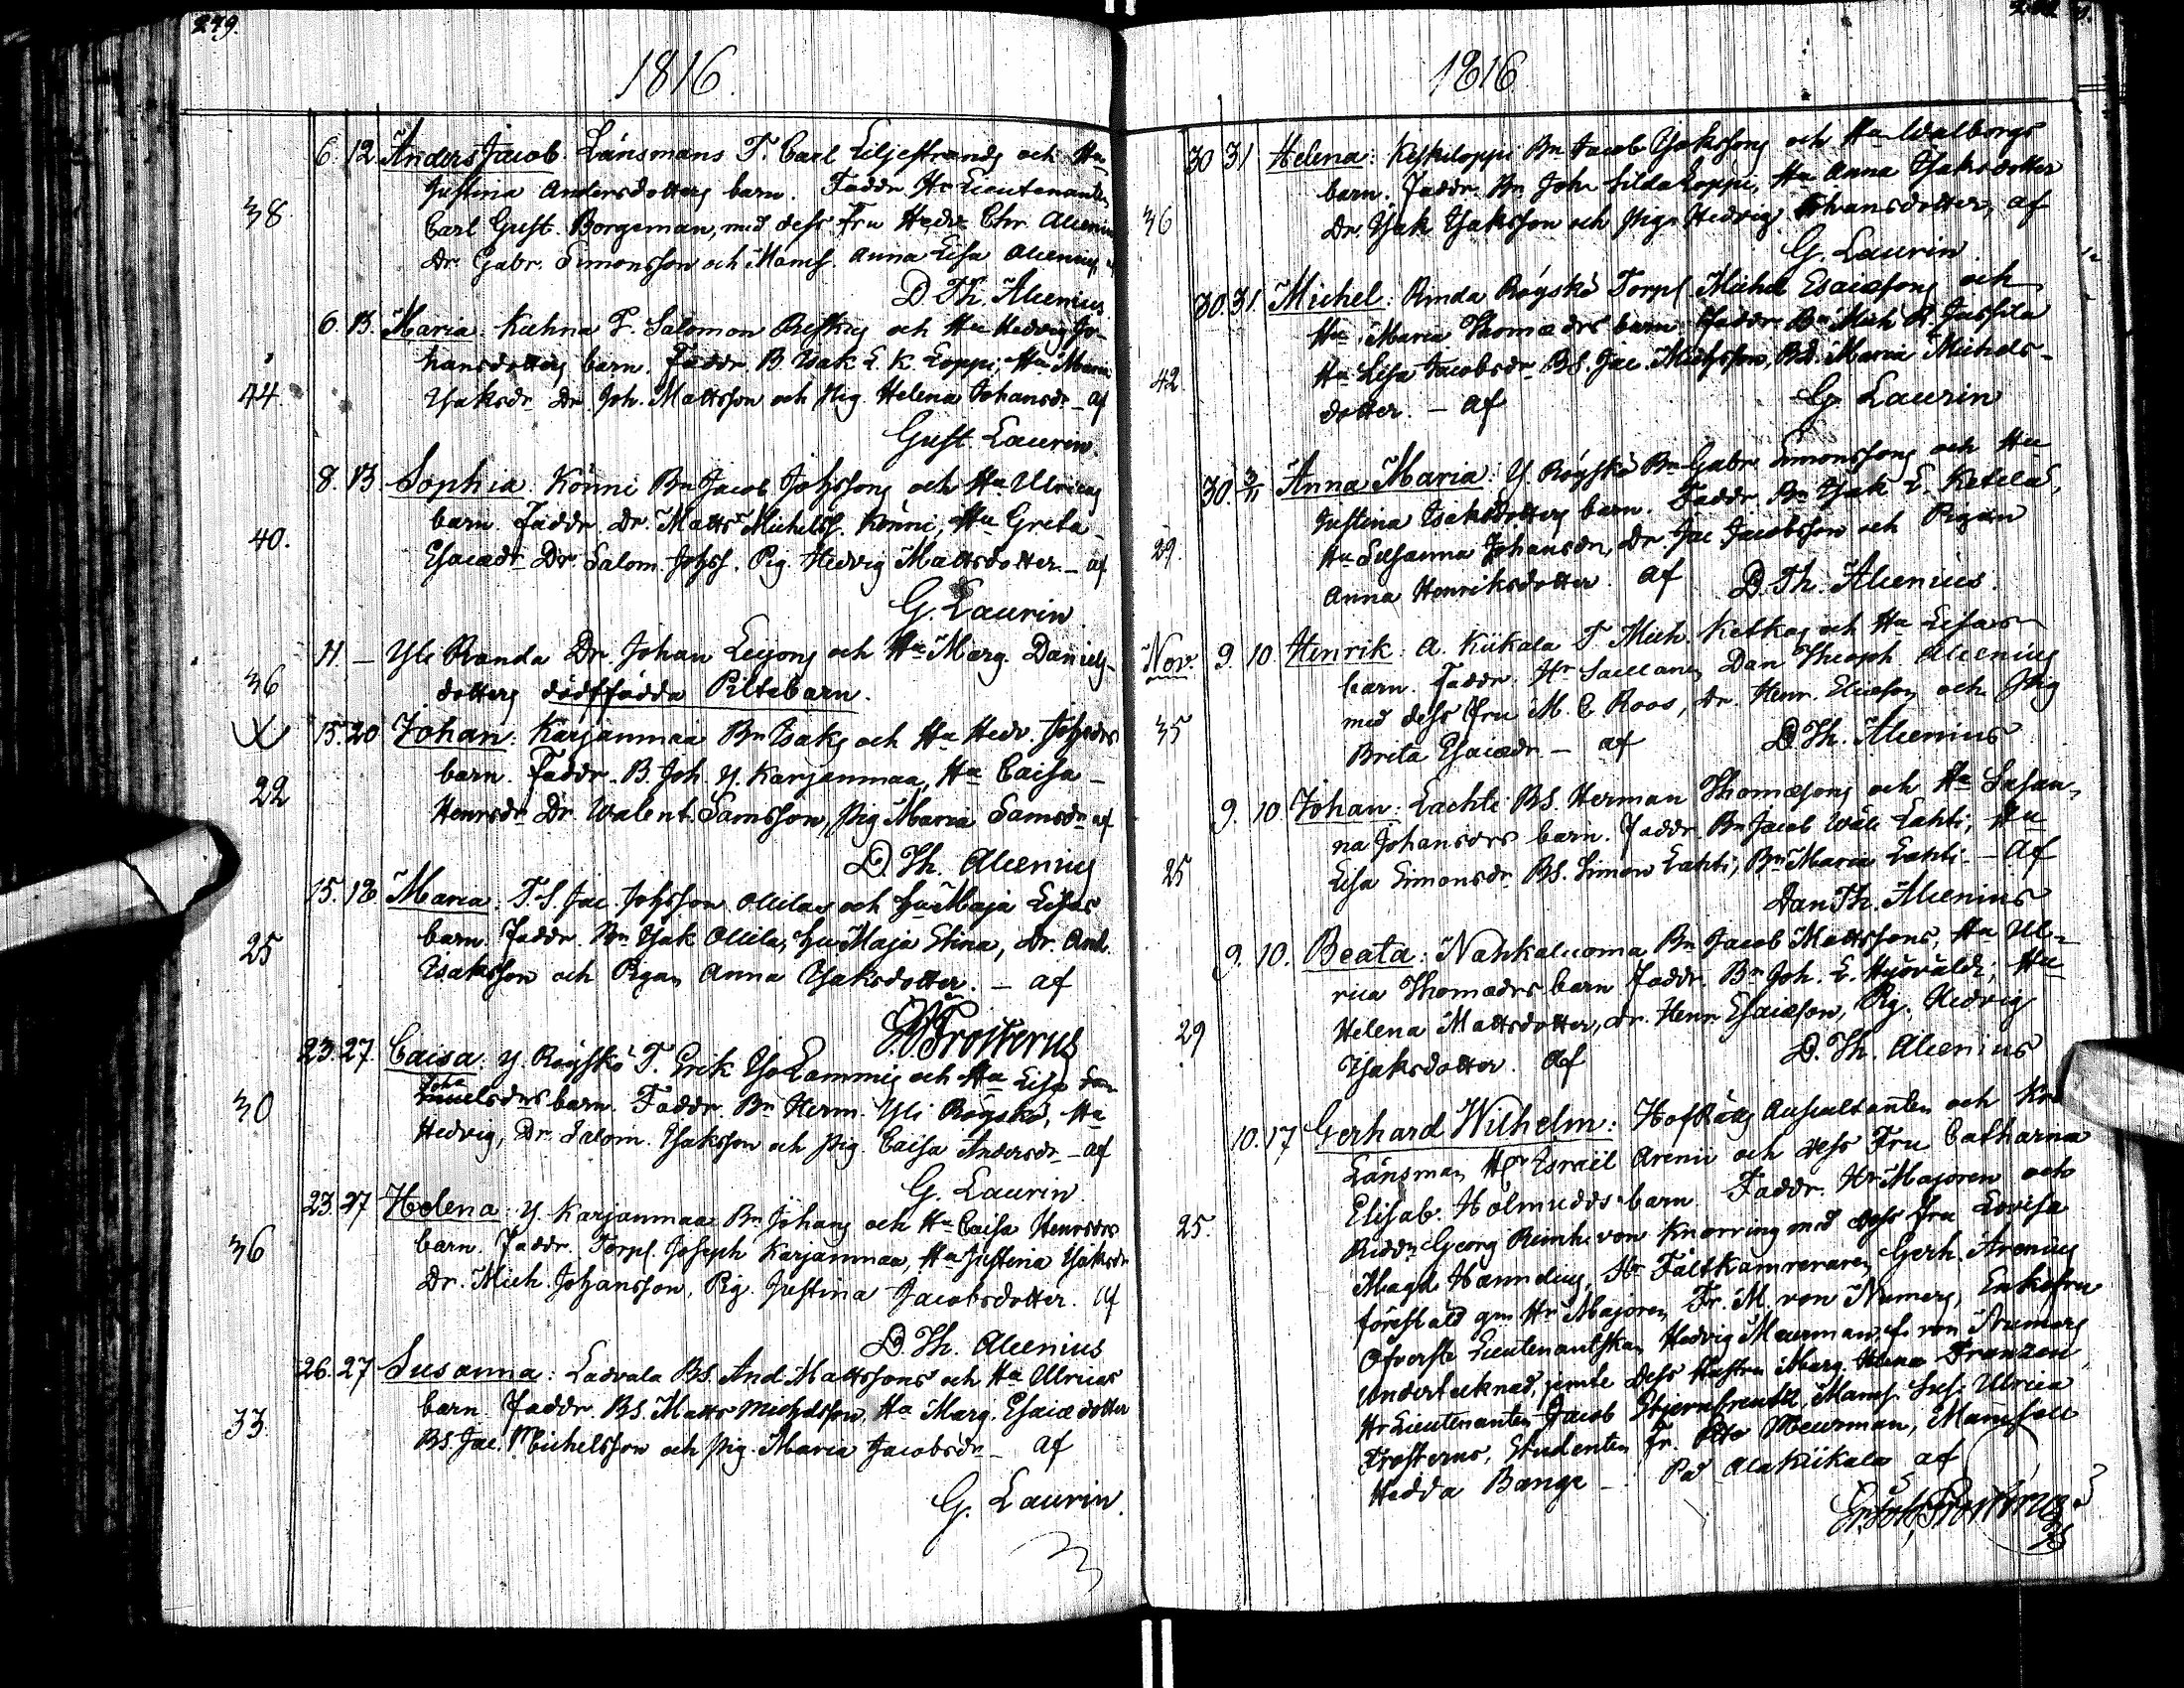 279.
1816.
6. 12 Anders Jacob. Länsmans T. Carl Liljestrands och Hu
Justina Andersdotters barn. Faddr. Hr Lieutenanten
38
Carl Gust. Borgeman, med dess Fru Hedv. Chr. Alcenius
Dr. Gabr. Simonsson och Mams. Anna Lisa Alcenius
D. Th. Alcenius
6. 13. Maria. T. Salomon och Hu Hedvig Jo-
hansdotters barn. Faddr. B. Isak L. K. Loppi, Hu Maria
44.
Isaksdr Dr Joh. Mattsson och Pig. Helena Johansdr – af
Gust. Laurin.
8. 13. Sophia. Könni Bn Jacob Johssons och Hu Ulricas
barn. Faddr. Dr. Matts Michelss. Könni, Hu Greta
40.
Esaiædr Dr. Salom. Johss. Pig. Hedvig Mattsdotter – af
G. Laurin
11. – Yli Randa Dr. Johan Leijons och Hu Marg. Daniels-
36
dotters dödfödda Piltebarn.
15. 20 Johan: Karjanmaa Bn Isaks och Hu Hedv. Johsdrs
barn. Faddr. B. Joh. Y. Karjanmaa, Hu Caisa
22
Henrsdr Dr. Walent. Samsson, Pig Maria Samsdr af
D. Th. Alcenius
15. 18 Maria. T. S. Jac. Johsson Ollilas och Hu Maja Lisas
barn. Faddr. Bn Isak Ollila, Hu Maja Stina, Dr. And.
25
Isaksson och Pigan Anna Isaksdotter. – af
Frosterus
23. 27. Caisa. Y. Röyskö T. Erik Iso Lammis och Hu Lisa
Joha
barn. Faddr. Bn Herm. Yli Röyskö, Hu
30
Hedvig, Dr. Salom. Isaksson och Pig. Caisa Andersdr – af
G. Laurin.
23. 27 Helena. Y. Karjanmaa Bn Johans och Hu Caisa Henrsdrs
36
barn. Faddr. Torp. Joseph Karjanmaa, Hu Justina Isaksdr
Dr. Mich. Johansson, Pig. Justina Jacobsdotter. af
D. Th. Alcenius
26. 27 Susanna: Ladvala BS. And. Mattssons och Hu Ulricas
barn. Faddr. BS. Matts Michelsson, Hu Marg. Esaiædotter
33.
BS. Jac. Michelsson och Pig. Maria Jacobsdr – af
G. Laurin.
1816
30 31 Helena: Keskiloppi Bn Jacob Isakssons och Hu Walborgs
barn. Faddr. Bn Joh. Sildaloppi, Hu Anna Isaksdotter
36
Dr. Isak Isaksson och Pign Hedvig Johansdotter, af
G. Laurin.
30. 31. Michel: Rinda Röyskö Torp. Michel Esaiæsons och
Hu Maria Thomædrs barn. Faddr. Bn Mich. A. Jussila
42.
Hu Lisa Jacobsdr BS. Jac. Michsson, BD. Maria Michels-
dotter. – af
G. Laurin
30. 3/11 Anna Maria: Y. Röyskö Bn Gabr. Simonssons och Hu
Justina Isaksdotters barn. Faddr. Bn Isak L. Ketela,
29.
Hu Susanna Johansdr, Dr. Jac. Jacobsson och Pigan
Anna Henriksdotter. af
D. Th. Alcenius.
Nov. 9. 10 Henrik: A. Kiikala T. Mich. och Hu Lisas
barn. Faddr. Hr Saellanen Dan Theoph. Alcenius
35
med dess Fru M. E. Roos, Dr. Henr. Eliæson och Pig
Brita Esaiædr – af
D. Th. Alcenius
9. 10 Johan: Lachti BS. Herman Thomæsons och Hu Susan-
na Johansdrs barn. Faddr. Bn Jacob Wäli Lahti, Hu
25
Lisa Simonsdr BS. Simon Lahti, Bn Maria Lahti – af
Dan Th. Alcenius
9. 10. Beata: Nahkaluoma Bn Jacob Mattssons, Hu Ul-
rica Thomædrs barn. Faddr. Bn Joh. L. Hyövälti, Hu
29
Helena Mattsdotter, Dr. Henr. Esaiæson, Pig. Hedvig
Isaksdotter. af
D. Th. Alcenius
10. 17 Gerhard Wilhelm: HofRätts Auscultanten och
Länsman Hr Israël Arenii och dess Fru Catharina
Elisab. Holmudds barn. Faddr. Hr Majoren och
25.
Ridd. Georg Reinh. von Knorring med dess Fru Lovisa
Magd. Hr Fältkamreraren Gerh. Arenius
föreställd gm Hr Majoren Fr. M. von Numers, Enkefru
Öfverste Lieutenantskan Hedvig Meurman f. von Numers
Undertecknad, jemte dess Hustru Marg. Helena Franzen,
Hr Lieutenanten Jacob Stjerncreutz, Mams. Sus. Ulrica
Frosterus, Studenten Fr. Otto Meurman, Mamsell
Hedda Bange – På Alakiikala af
Frosterus